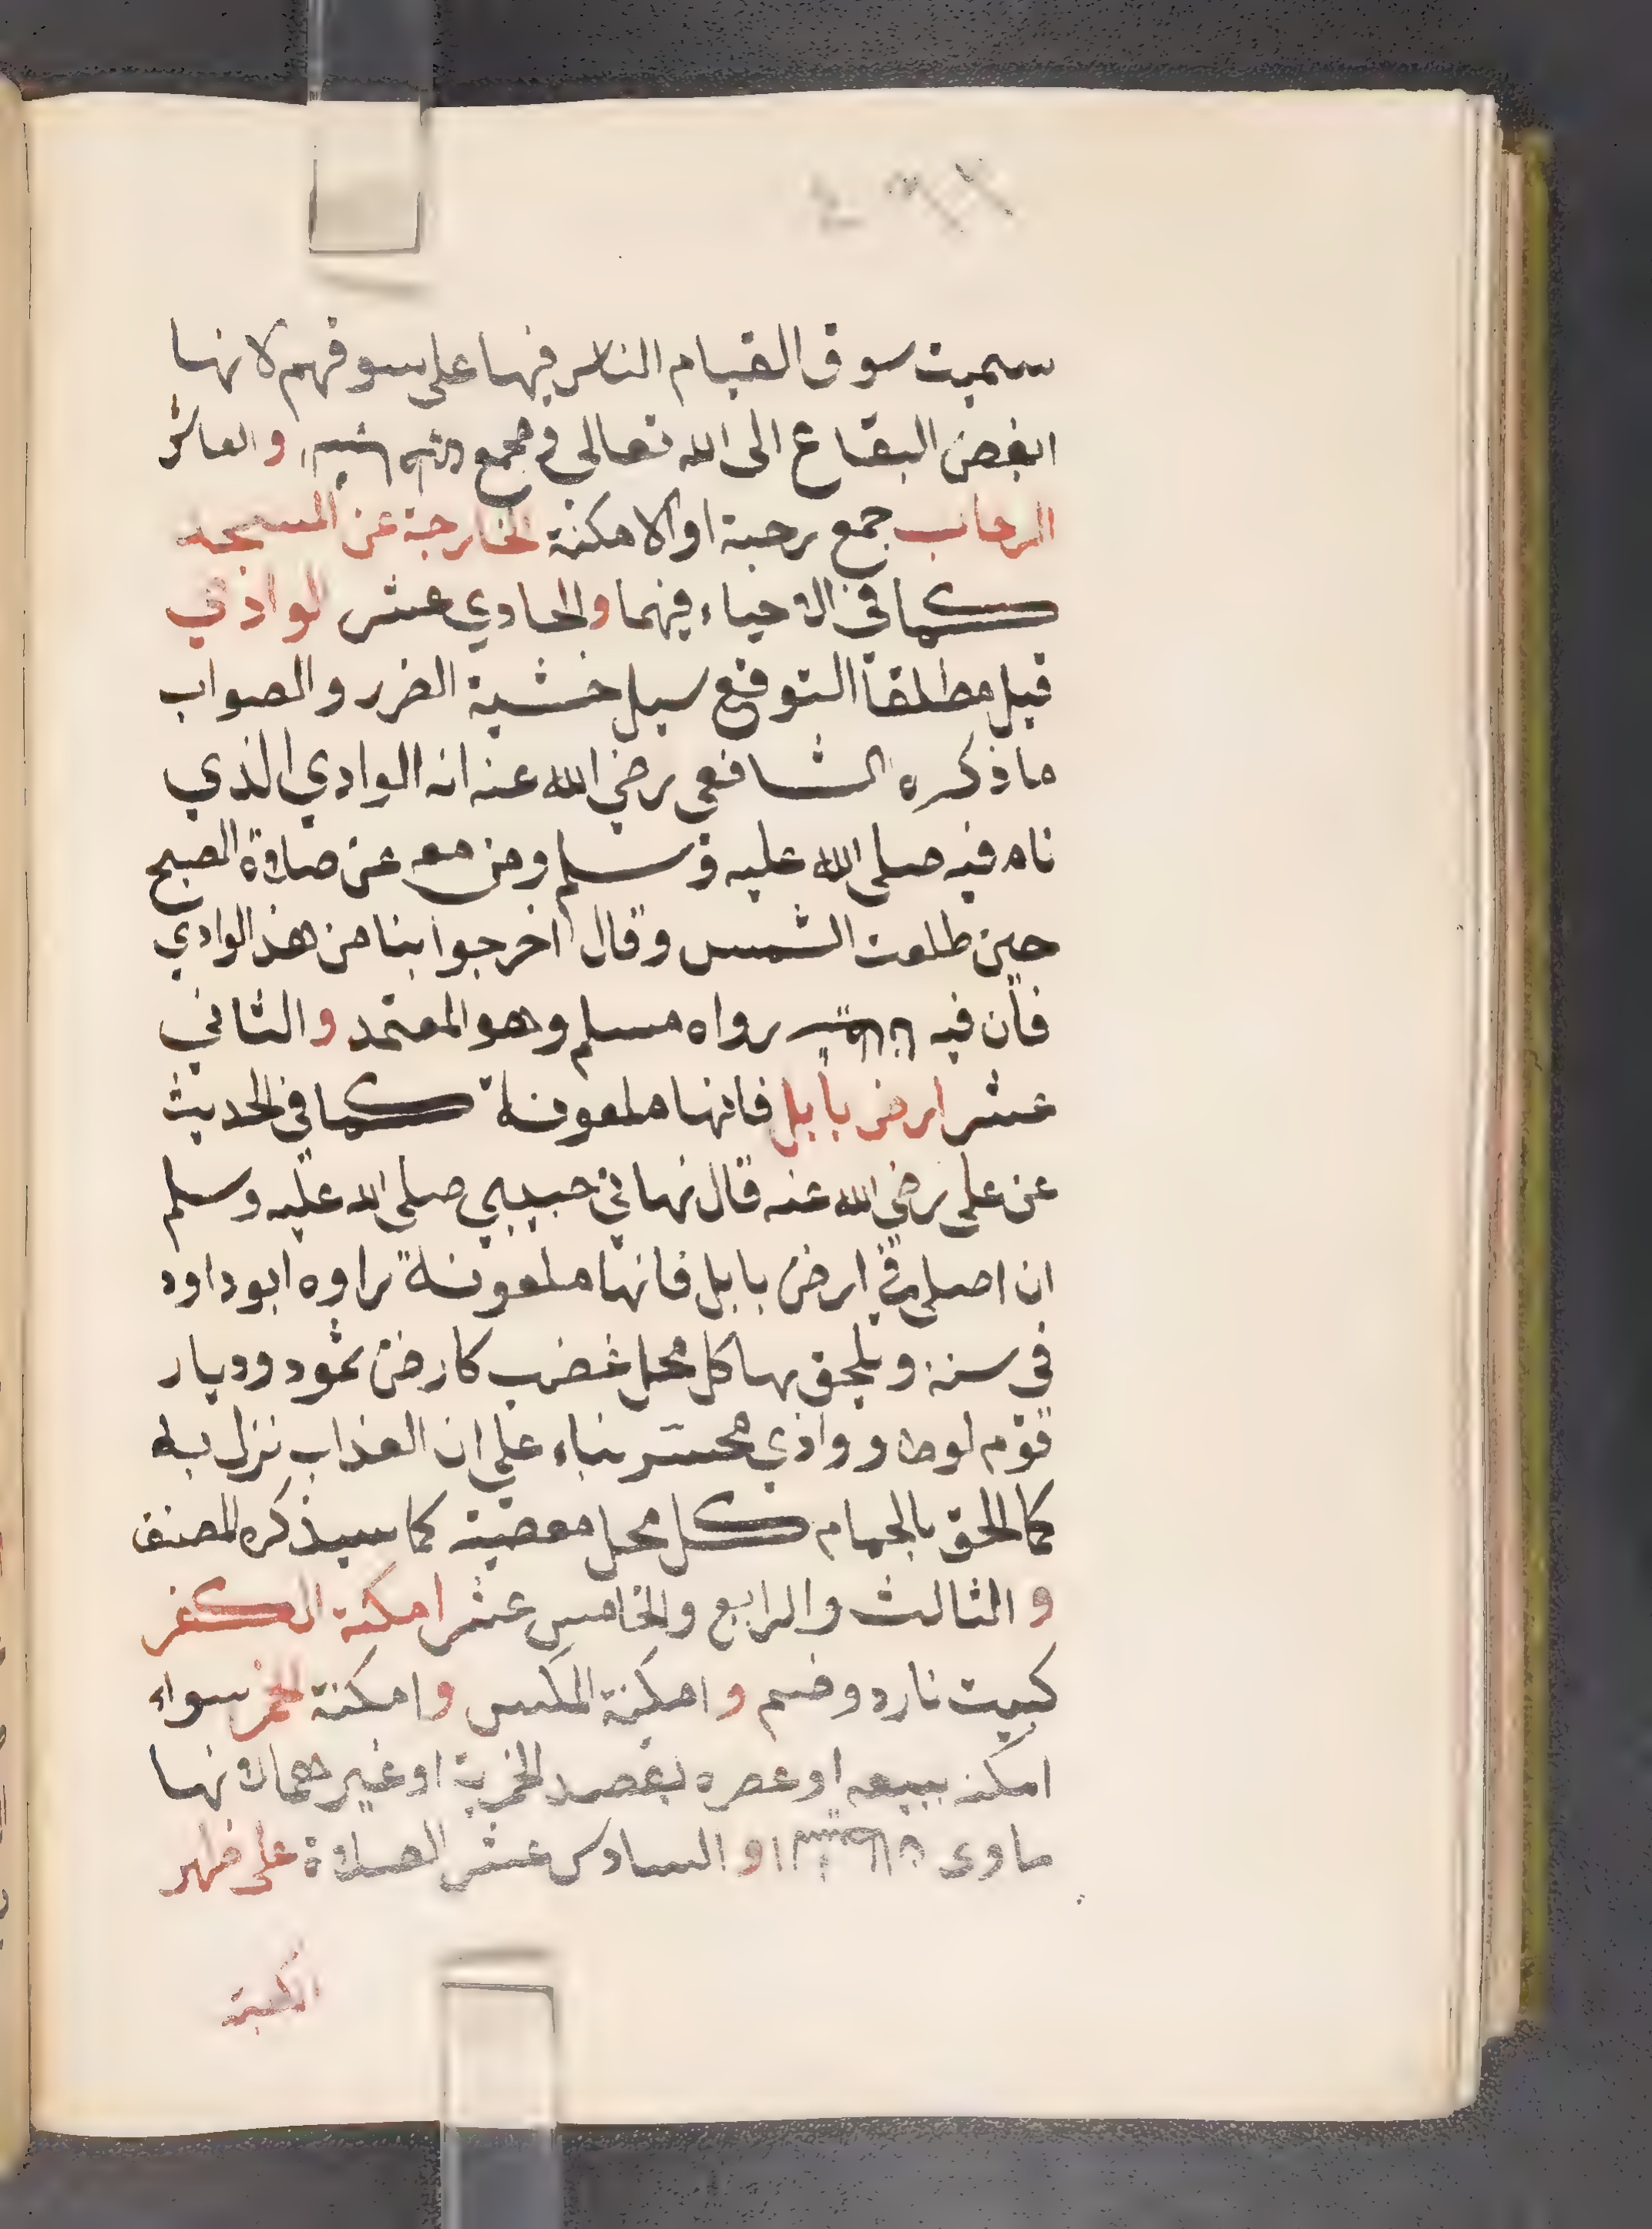 سميت سوق القيام الناس فيها على سوقهم لانها
ابغض البقاع الى الله تعالى ومجمع والعاشر
الرحاب جمع رحبة او الامكنة الخارجة عن المسجد
كما في الاحياء فيهما والحادي عشر لوادي
قيل مطلقا التوقع سيل خشية الضرر والصواب
ما ذكره الشافعي رضي الله عنه انه الوادي الذي
نام فيه صلى الله عليه وسلم ومن معه عن صلاة الصبح
حين طلعت الشمس وقال اخرجوا بنا من هذ الوادي
فان فيه رواه مسلم وهو المعتمد والثاني
عشر ارض بابل فانها ملعونة كما في الحديث
عن علي رضي الله عنه قال نهاني حبيبي صلى الله عليه وسلم
ان اصلي في ارض بابل فانها ملعونة راوه ابو داود
في سننه ويلحق بها كل محل غضب كارض ثمود وديار
قوم لوط ووادي محسر بناء على ان العذاب نزل به
كما الحق بالحمام كل محل معصية كما سيذكره المصنف
والثالث والرابع والخامس عشر امكنة الكفر
كبيت نار وصنم وامكنة المكس وامكنة الخمر سواء
امكنه بيعه او عصره بقصد الخمرية او غيرهما لانها
ماوى والسادس عشر الصلاة على ظهر
الكعبة